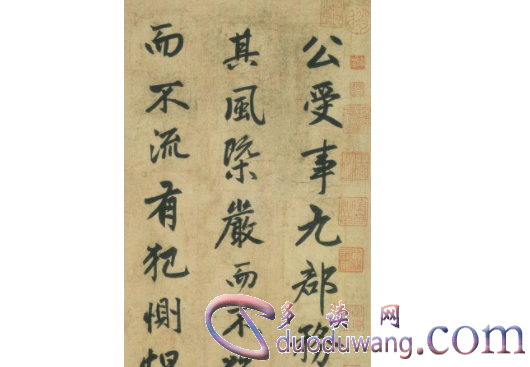 公受事九部務
其風槩嚴而不
而不流有犯惻
多读网
duoduwang.com